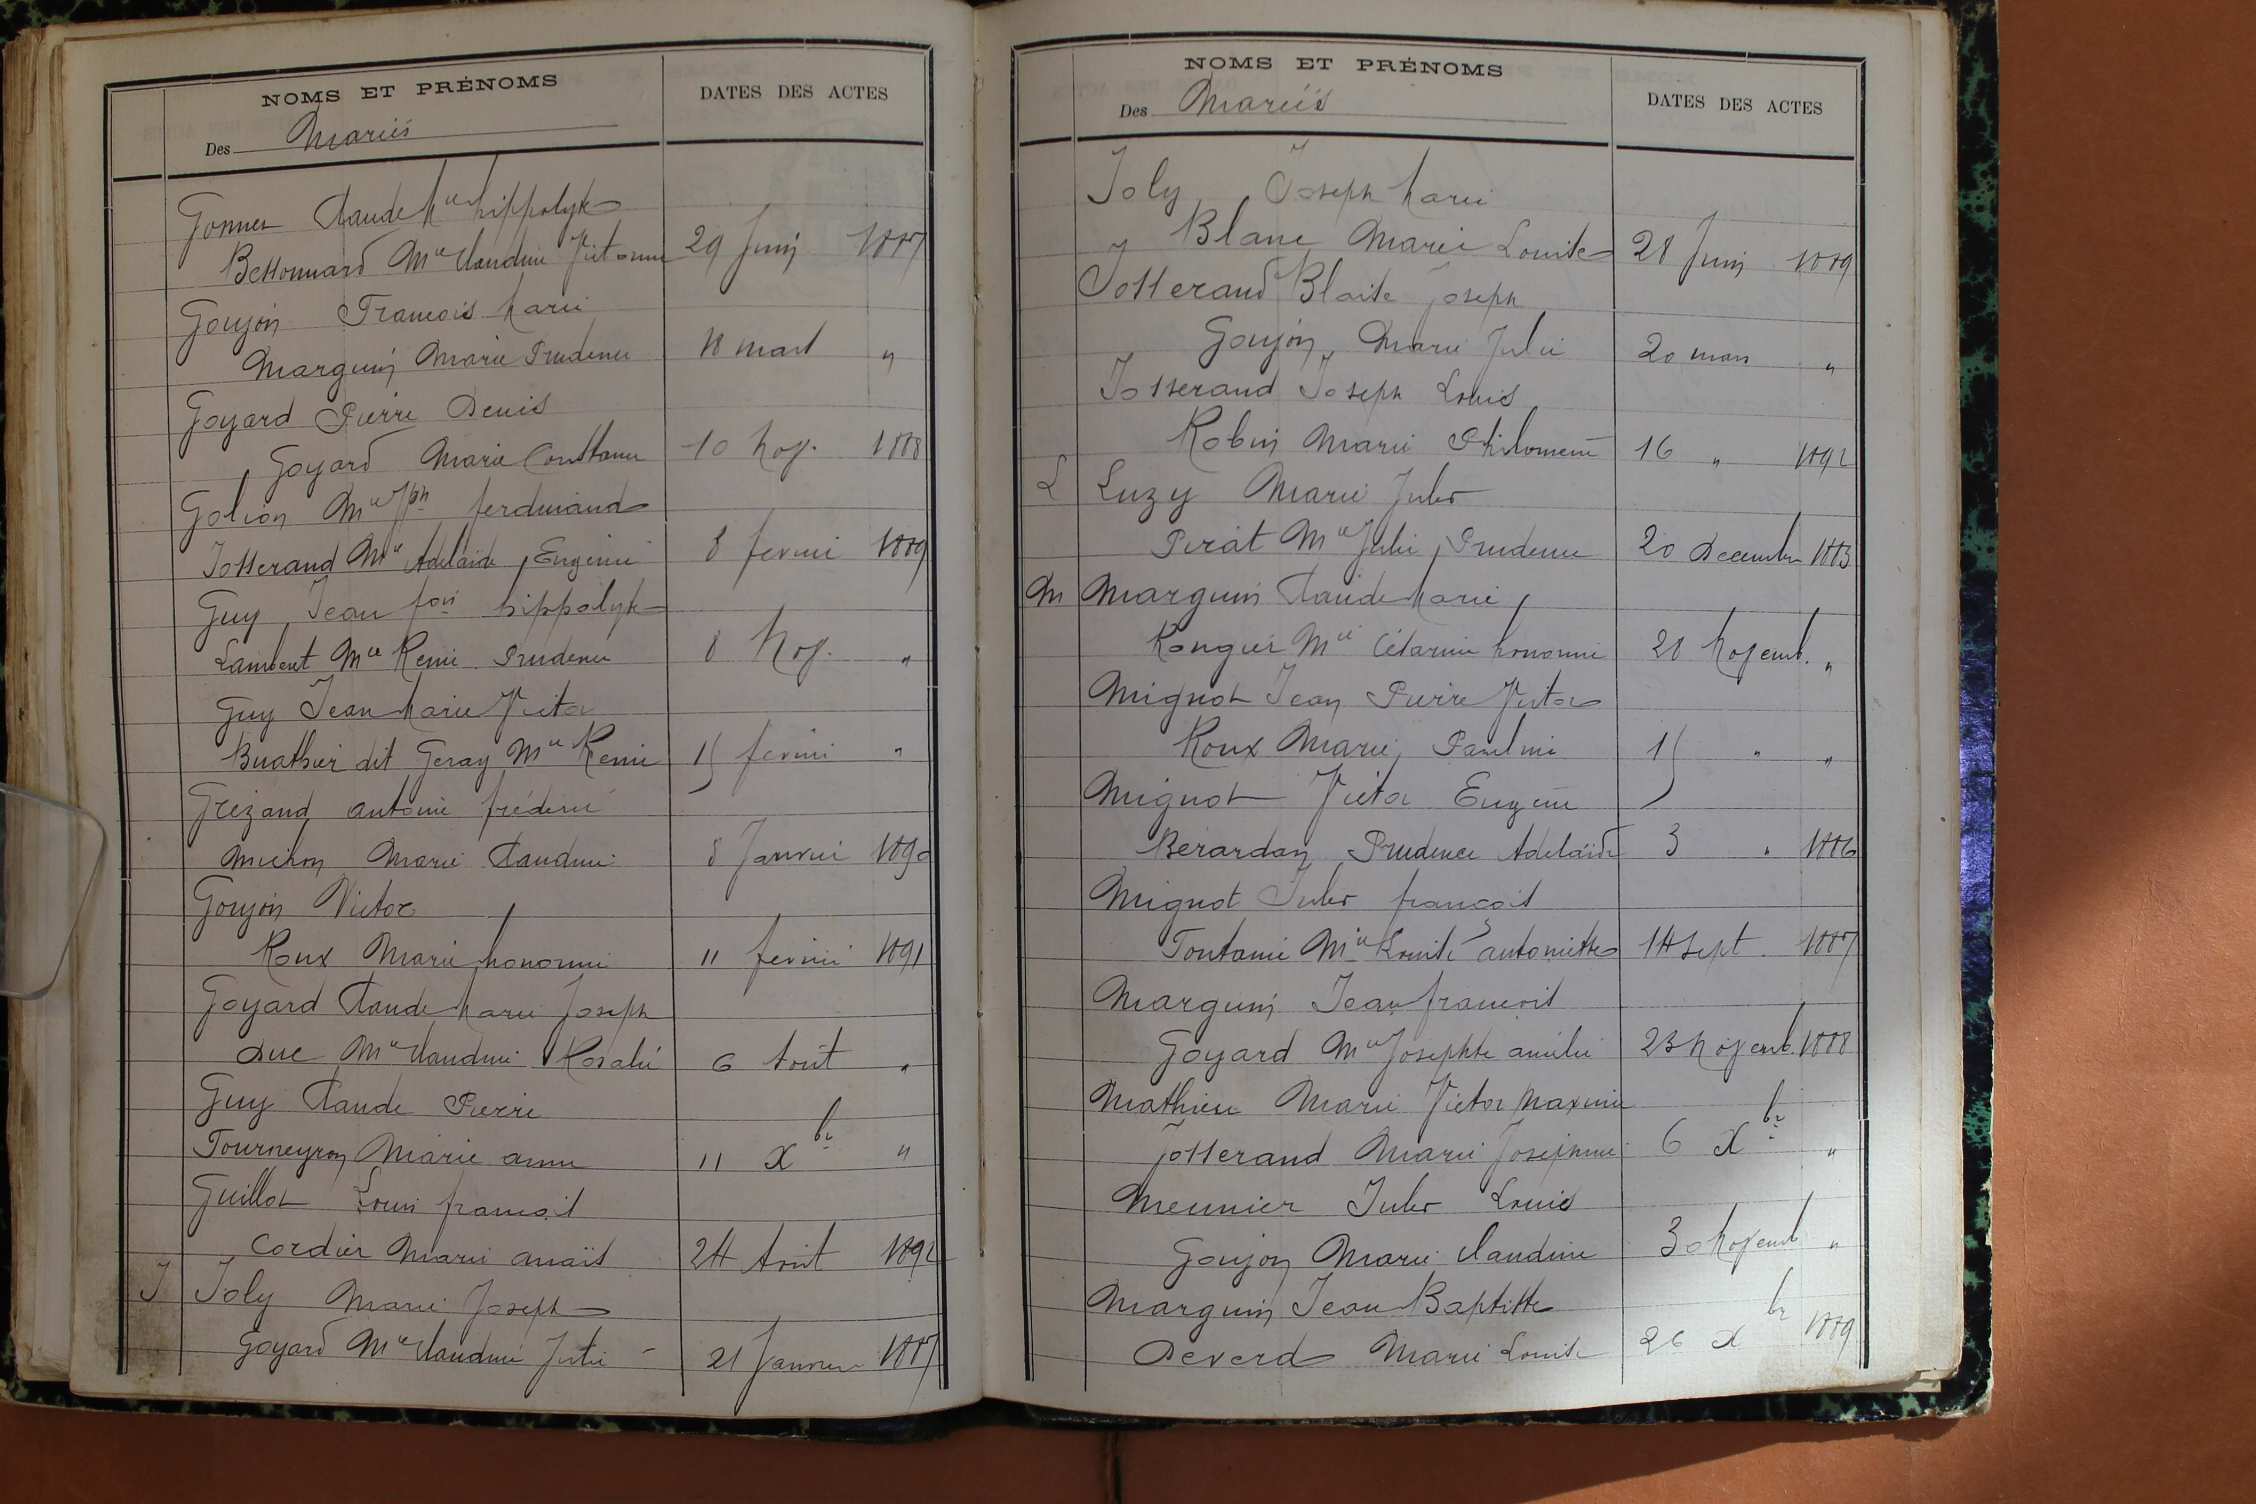 NOMS ET PRÉNOMS
DATES DES ACTES
Des Mariés
Gonnet Claude Mie hippolyte
Bessonnard Mie Claudine Victorine 29 Juin 1887
Goujon François Marie
Marguin Marie Prudence 18 mars "
Goyard Pierre Denis
Goyard Marie Constance 10 Nov. 1888
Golion Mie Jph ferdinand
Josserand Mie Adelaide Eugénie 8 fevrier 1889
Guy Jean fois hippolyte
Lambert Mie Remie Prudence 8 Nov. "
Guy Jean Marie Victor
Buathier dit Geray Mie Remie 15 fevrier "
Grezaud antoine fréderic
Michon Marie Claudine 8 Janvier 1890
Goujon Victor
Roux Marie honorine 11 fevrier 1891
Goyard Claude Marie Joseph
Duc Mie Claudine Rosalie 6 Aout "
Guy Claude Pierre
Tourneyron Marie anne 11 Xbre "
Guillot Louis françois
Cordier Marie anaïs 24 Aout 1892
J Joly Marie Joseph
Goyard Mie Claudine Julie 21 Janvier 1887
NOMS ET PRÉNOMS
DATES DES ACTES
Des Mariés
Joly Joseph Marie
Blanc Marie Louise 28 Juin 1889
Josserand Blaise Joseph
Goujon Marie Julie 20 mars "
Josserand Joseph Louis
Robin Marie Philomène 16 " 1892
L Luzy Marie Jules
Perat Mie Julie Prudence 20 Decembre 1883
M Marguin Claude Marie
Rongier Mie Césarine honorine 28 Novemb. "
Mignot Jean Pierre Victor
Roux Marie Pauline 15 " "
Mignot Victor Eugène
Berardan Prudence Adelaïde 3 " 1886
Mignot Jules françois
Fontaine Mie Louise antoinette 14 Sept. 1887
Marguin Jean françois
Goyard Mie Josephte amélie 23 Novemb. 1888
Mathieu Marie Victor Maxime
Josserand Marie Josephine 6 Xbre "
Meunier Jules Louis
Goujon Marie Claudine 30 Novemb "
Marguin Jean Baptiste
Deverd Marie Louise 26 Xbre 1889